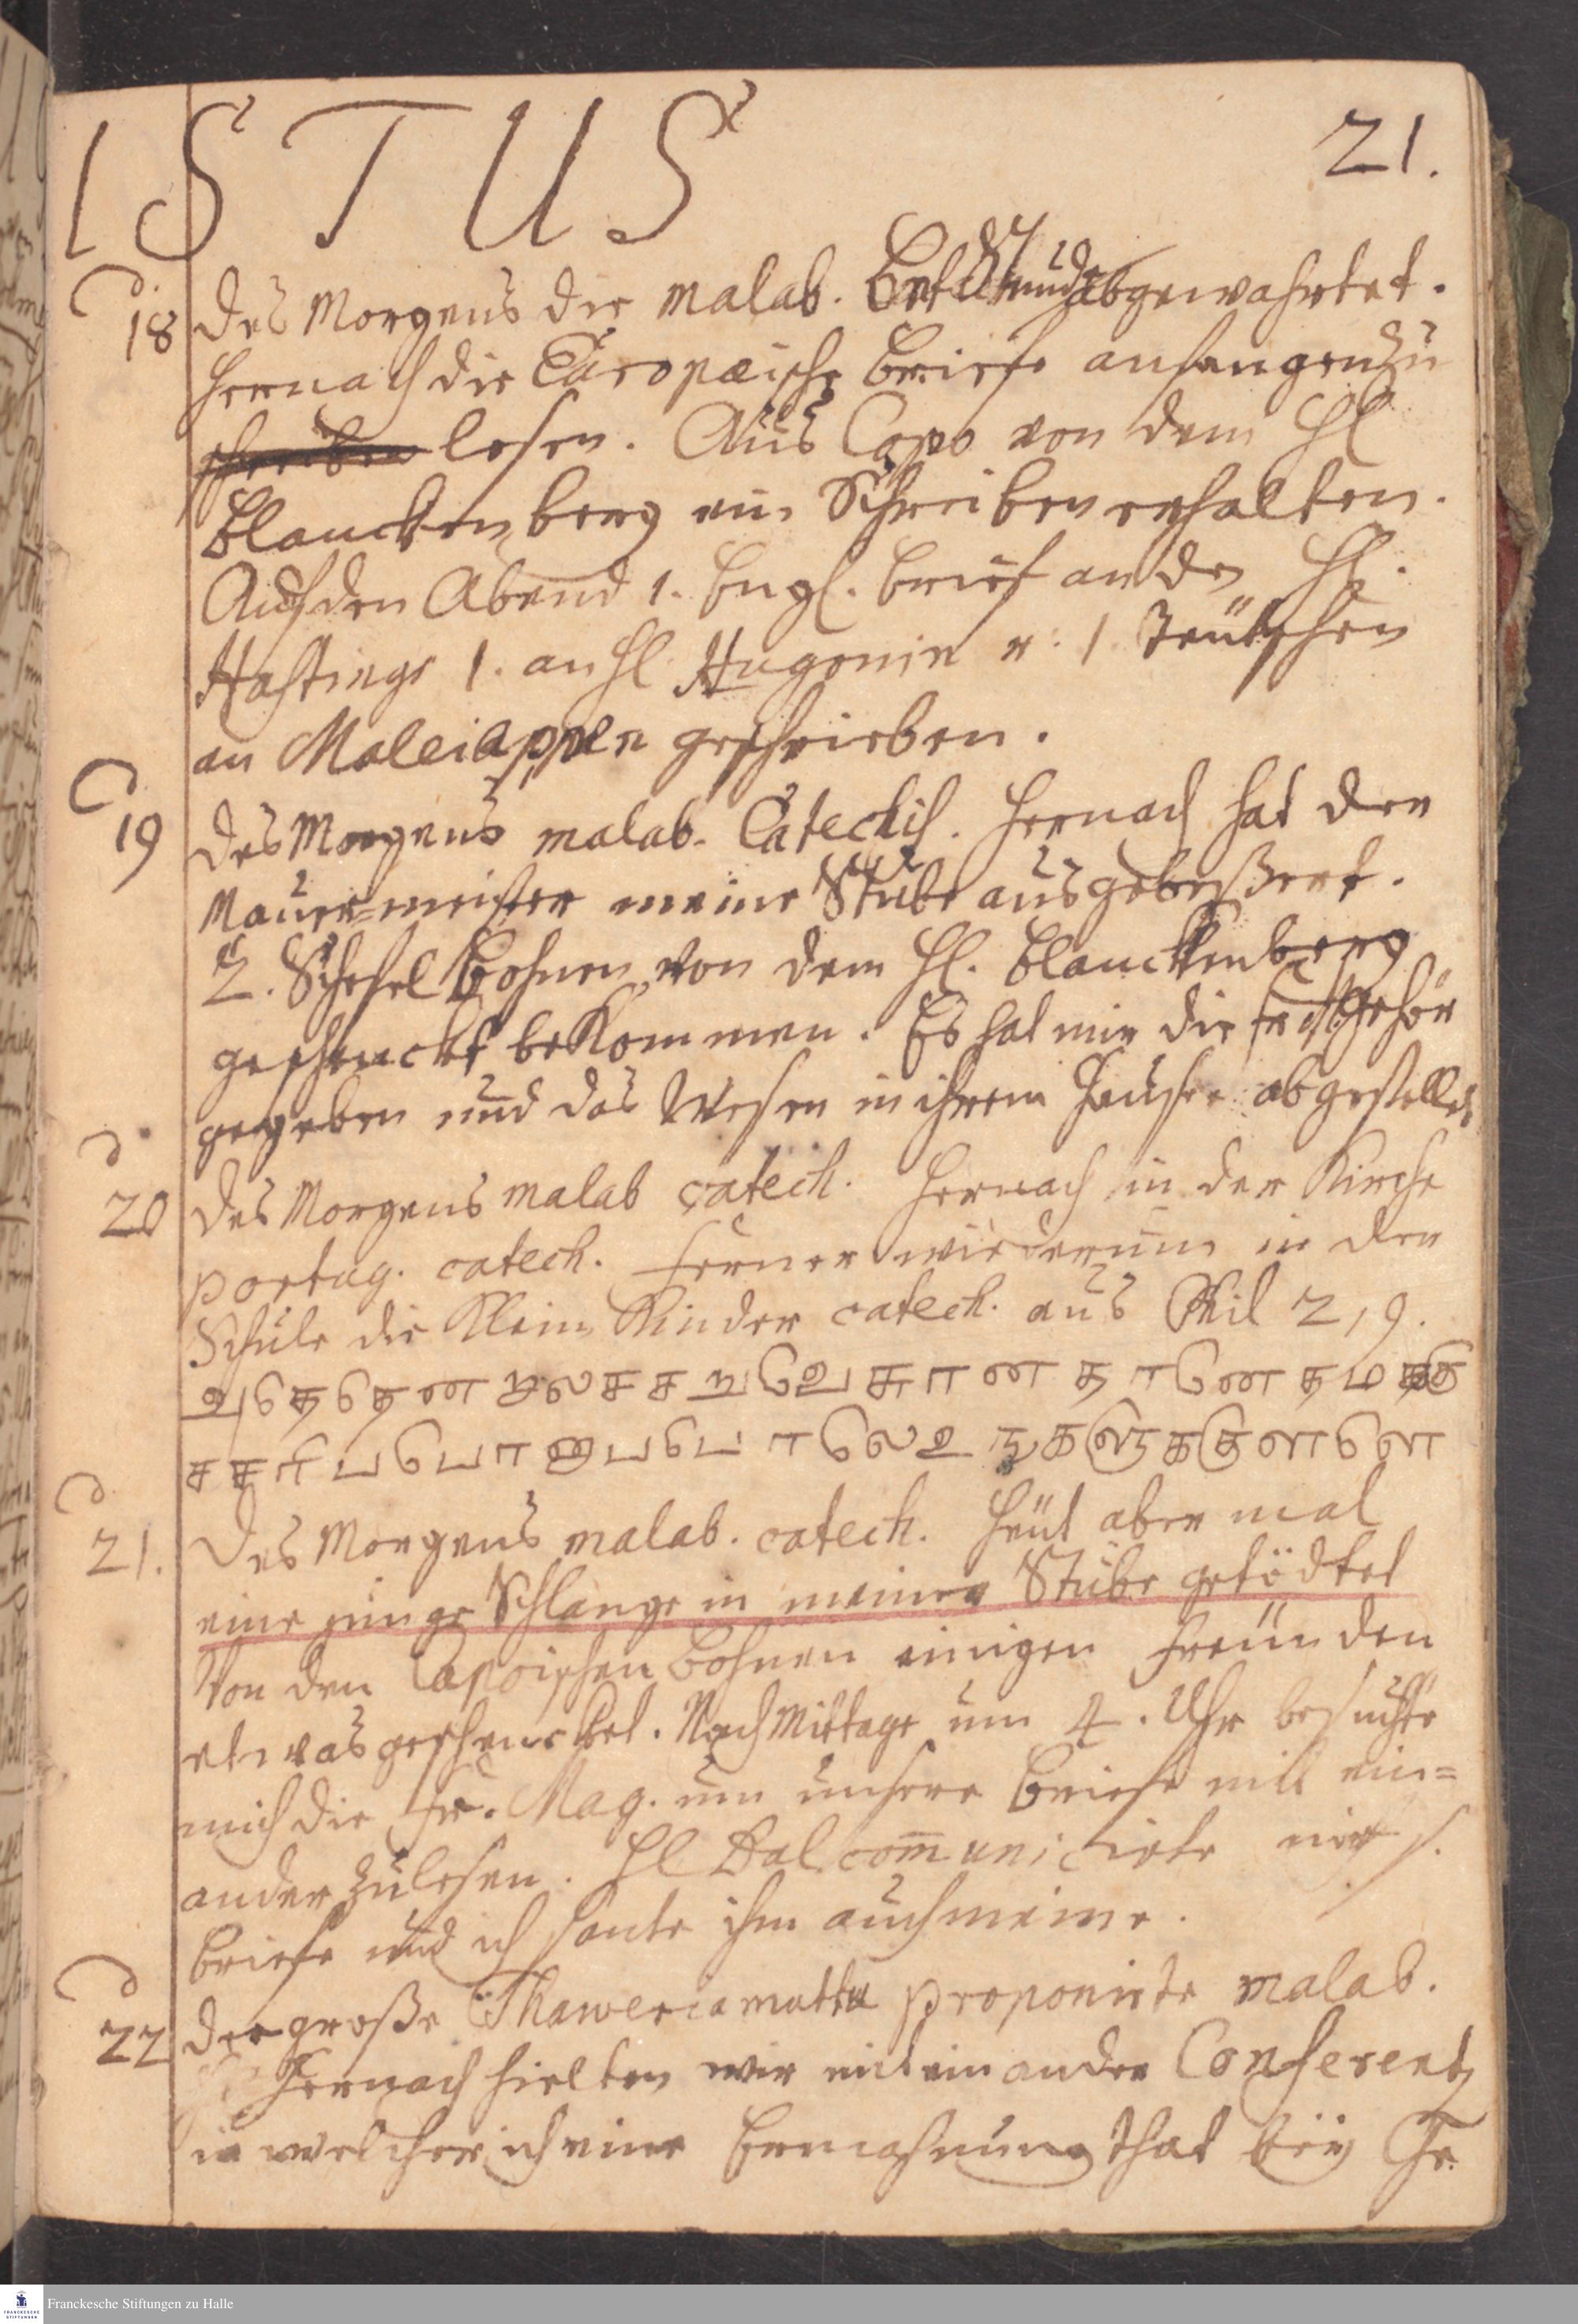 ISTUS
21.
18 des Morgens die malab. Betstunde abgewahrtet.
hernach die Europæische Briefe anfangen zu
schreiben lesen. Aus Capo von dem Hl
Blanckenberg ein Schreiben erhalten.
Auf den Abend 1. Engl. Brief an den Hl.
Hastings 1. an Hl Hugonin u. 1 Teütschen
an Maleiappen geschrieben.
19 des Morgens malab. Catechis. hernach hat der
Mauer-meister meine Stube ausgebeßert.
2. Schefel Bohnen von dem Hl. Blanckenberg
geschenckt bekommen. Es hat mir die Gehör
gegeben und das Wesen in ihrem Hause abgestellet
20 des Morgens malab catech. hernach in der Kirche
portug. catech. ferner wiederum in der
Schule die Klein Kinder catech. aus Phil 2,9.
21. Des Morgens malab. catech. heüt abermal
eine junge Schlange in meiner Stube getödtet
Von den Capoischen Bohnen einigen Freünden
etwas geschencket. Nach Mittage um 4. Uhr besuchte
mich die Fr. Mag. um unsere Briefe mit ein=
ander zu lesen. Hl Dal com̅unicirte mir s.
Briefe und ich sante ihm auch meine.
22 der große Thaweriamuttu proponirte malab.
hernach hielten wir mit einander Conferentz
in welcher ich eine Ermahnung that bey
Franckesche Stiftungen zu Halle